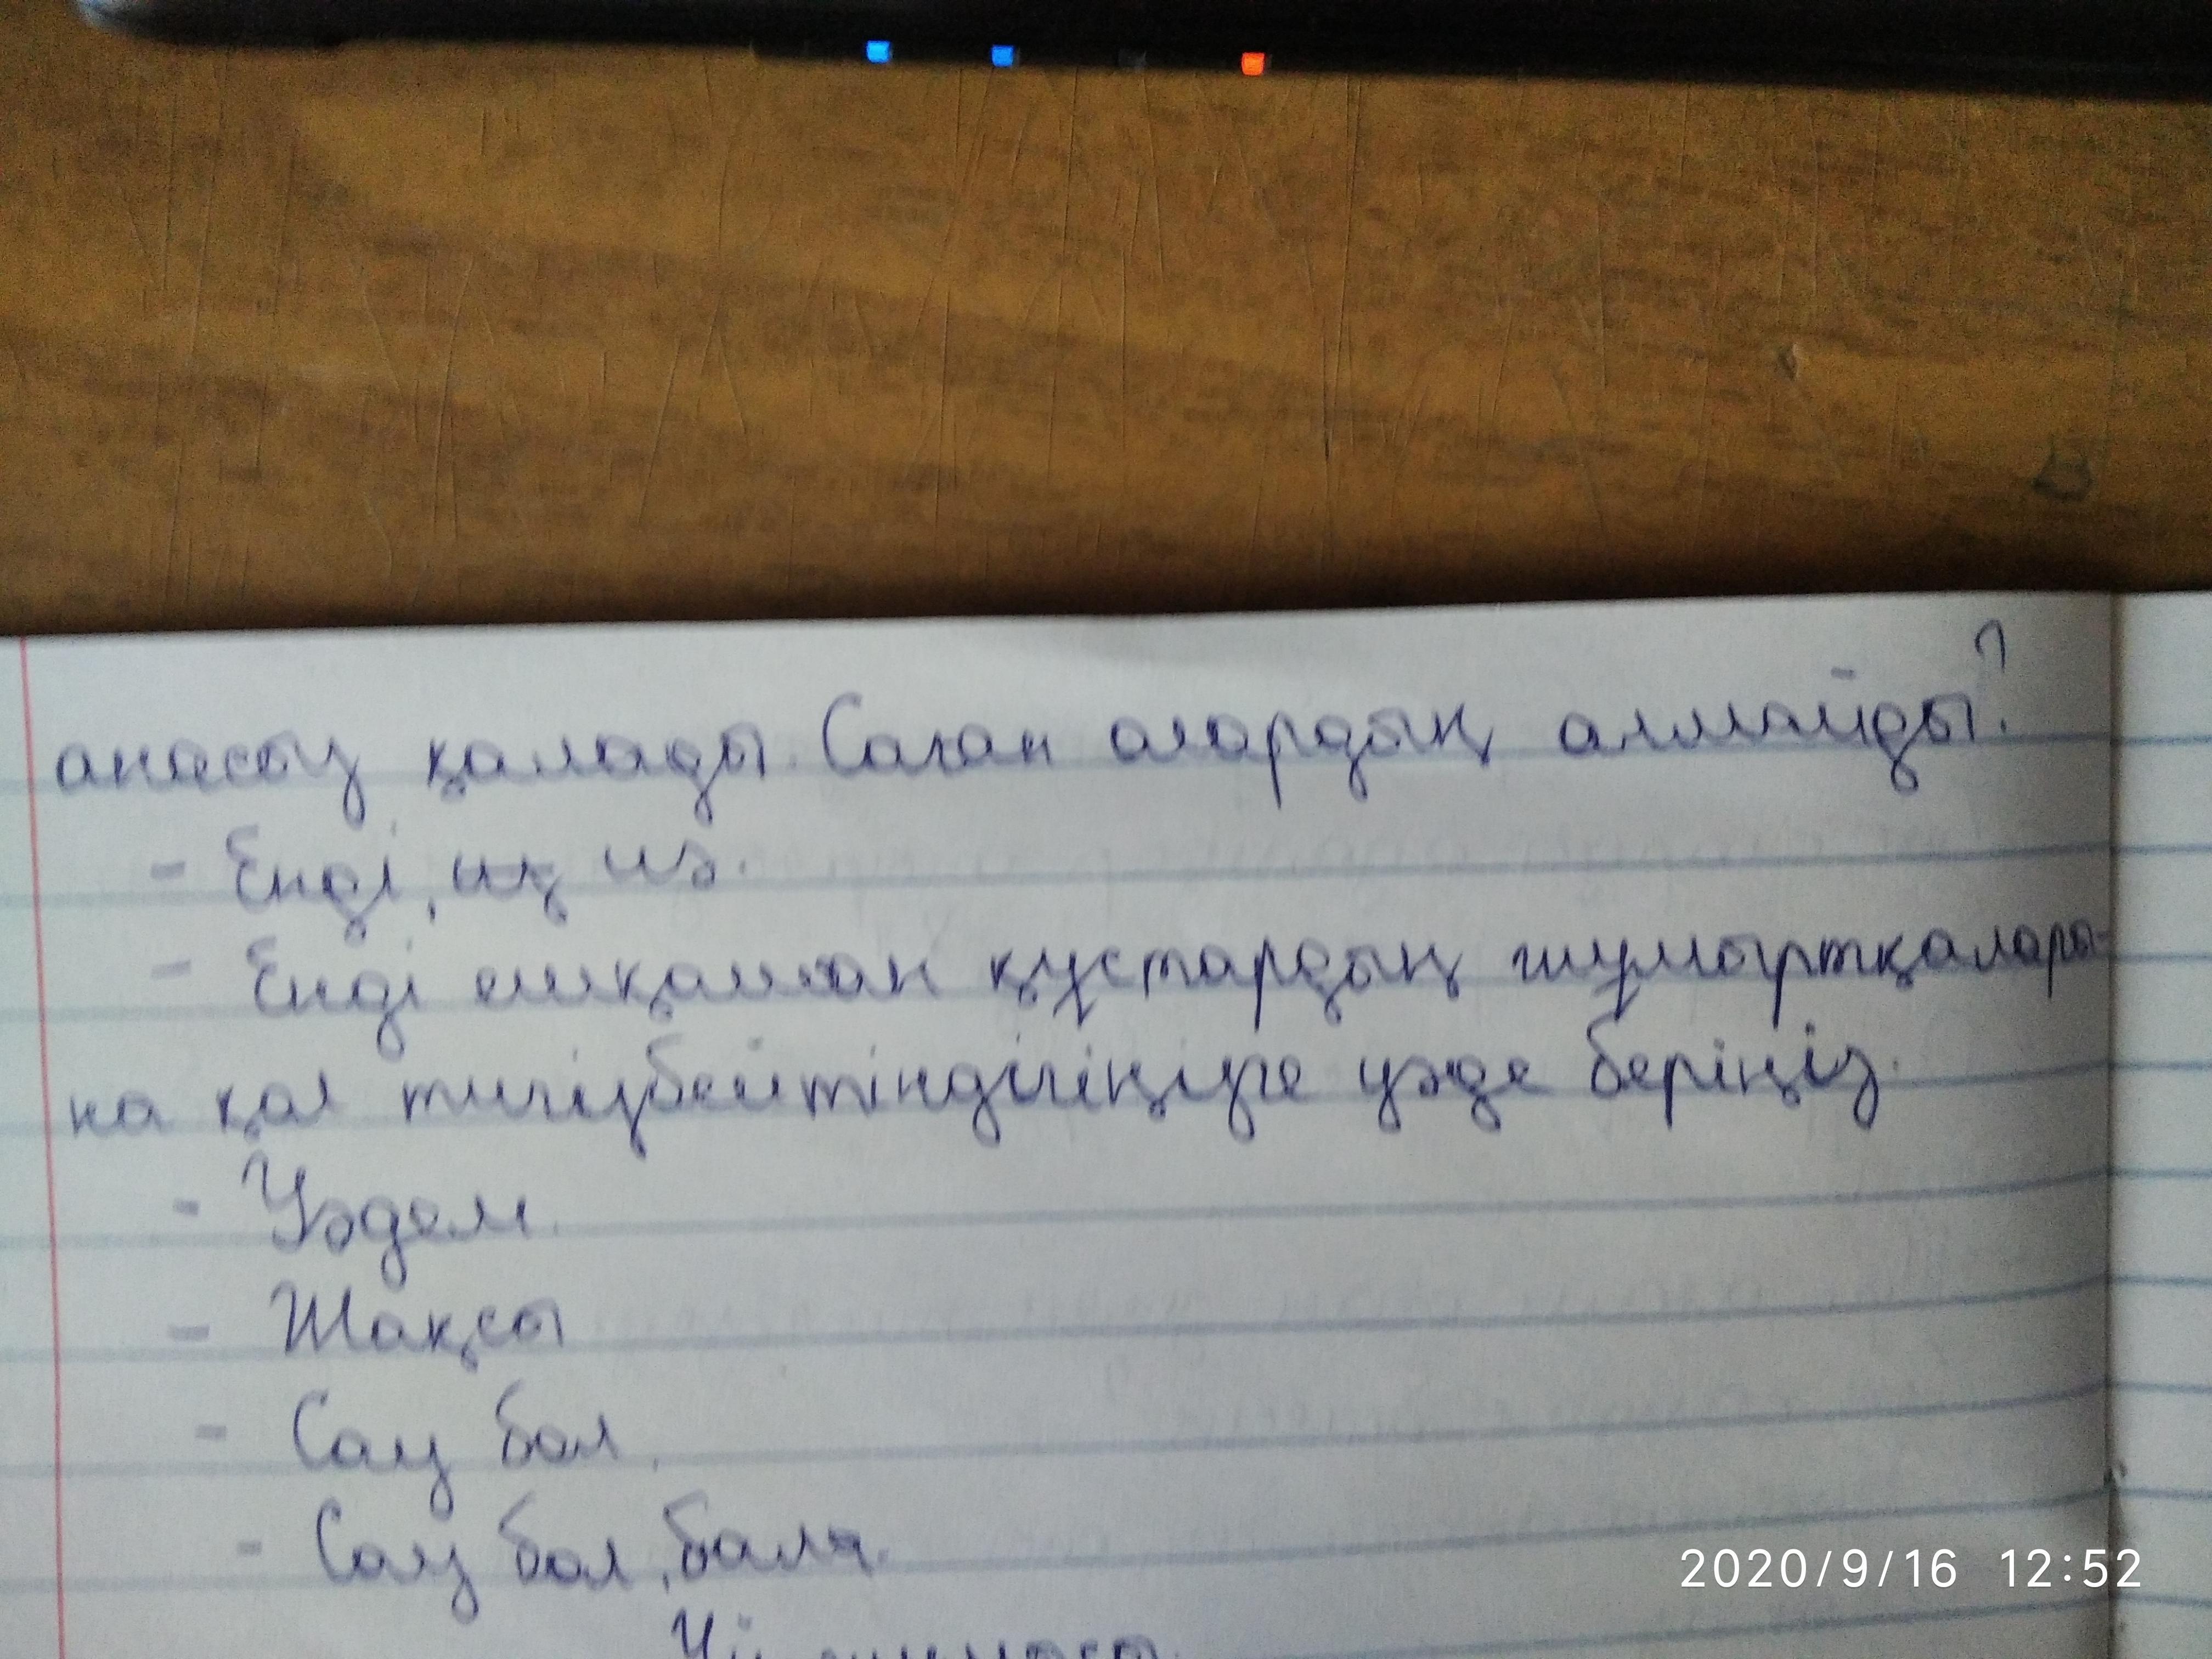 анасыз қалады. Саған олардың алмайды?
- Енді, иә.
- Енді ешқашан құстардың жұмыртқалары-
на қол тигізбейтіндігіңізге уәде беріңіз.
- Уәдем.
- Жақсы
- Сау бол.
- Сау бол, бала.
Үй жұмысы.
2020/9/16 12:52